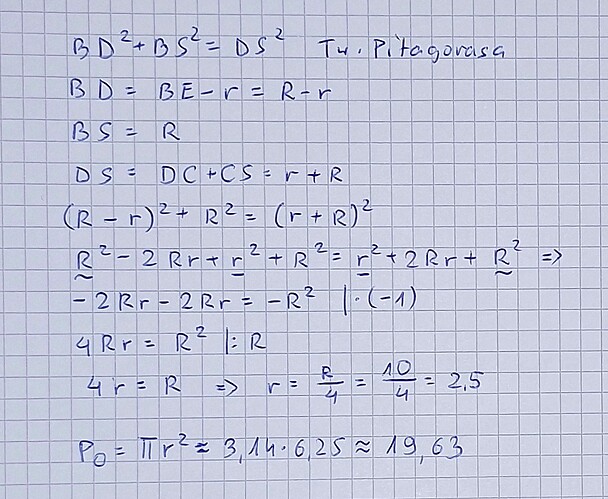 BD² + BS² = DS² Tw. Pitagorasa
BD = BE - r = R - r
BS = R
DS = DC + CS = r + R
(R - r)² + R² = (r + R)²
R² - 2Rr + r² + R² = r² + 2Rr + R² =>
- 2Rr - 2Rr = -R² |·(-1)
4Rr = R² |: R
4r = R => r = R/4 = 10/4 = 2,5
P₀ = πr² ≈ 3,14 · 6,25 ≈ 19,63